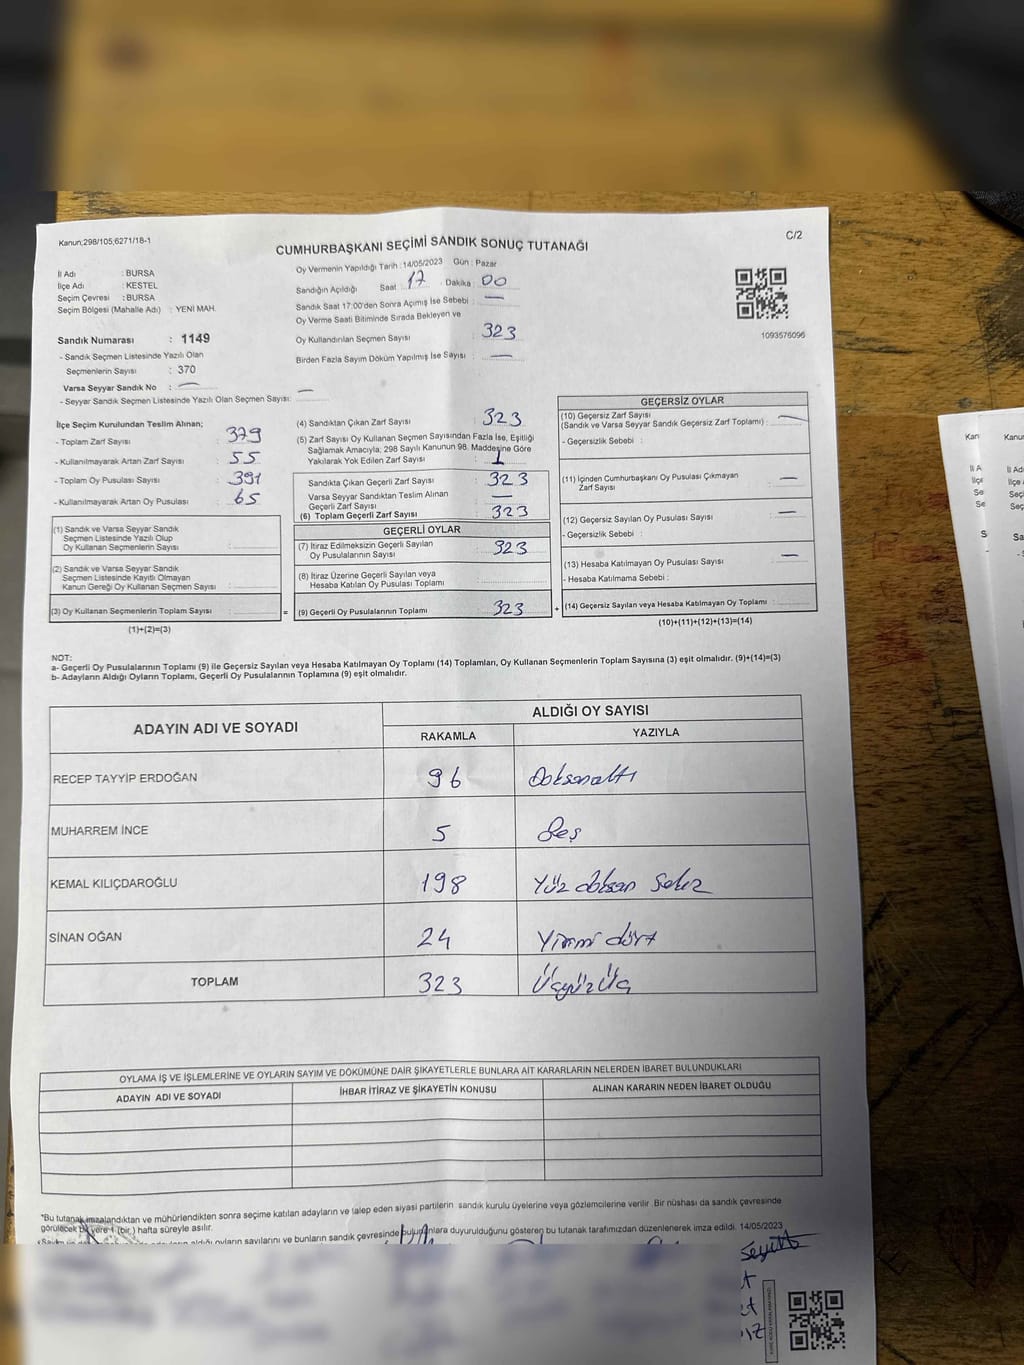 Kanun;298/105,6271/18-1
C/2
CUMHURBAŞKANI SEÇİMİ SANDIK SONUÇ TUTANAĞI
İl Adı : BURSA
İlçe Adı : KESTEL
Seçim Çevresi : BURSA
Seçim Bölgesi (Mahalle Adı) : YENİ MAH.
Sandık Numarası : 1149
- Sandık Seçmen Listesinde Yazılı Olan
Seçmenlerin Sayısı : 370
Varsa Seyyar Sandık No : —
- Seyyar Sandık Seçmen Listesinde Yazılı Olan Seçmen Sayısı: —
Oy Vermenin Yapıldığı Tarih : 14/05/2023 Gün : Pazar
Sandığın Açıldığı Saat : 17 Dakika : 00
Sandık Saat 17:00'den Sonra Açımış İse Sebebi : —
Oy Verme Saati Bitiminde Sırada Bekleyen ve
Oy Kullandırılan Seçmen Sayısı : 323
Birden Fazla Sayım Döküm Yapılmış İse Sayısı : —
1093576096
İlçe Seçim Kurulundan Teslim Alınan;
- Toplam Zarf Sayısı : 379
- Kullanılmayarak Artan Zarf Sayısı : 55
- Toplam Oy Pusulası Sayısı : 391
- Kullanılmayarak Artan Oy Pusulası : 65
(1) Sandık ve Varsa Seyyar Sandık
Seçmen Listesinde Yazılı Olup
Oy Kullanan Seçmenlerin Sayısı :
(2) Sandık ve Varsa Seyyar Sandık
Seçmen Listesinde Kayıtlı Olmayan
Kanun Gereği Oy Kullanan Seçmen Sayısı :
(3) Oy Kullanan Seçmenlerin Toplam Sayısı :
(1)+(2)=(3)
=
(4) Sandıktan Çıkan Zarf Sayısı : 323
(5) Zarf Sayısı Oy Kullanan Seçmen Sayısından Fazla İse, Eşitliği
Sağlamak Amacıyla; 298 Sayılı Kanunun 98. Maddesine Göre
Yakılarak Yok Edilen Zarf Sayısı : 1
Sandıkta Çıkan Geçerli Zarf Sayısı : 323
Varsa Seyyar Sandıktan Teslim Alınan
Geçerli Zarf Sayısı : —
(6) Toplam Geçerli Zarf Sayısı : 323
GEÇERLİ OYLAR
(7) İtiraz Edilmeksizin Geçerli Sayılan
Oy Pusulalarının Sayısı : 323
(8) İtiraz Üzerine Geçerli Sayılan veya
Hesaba Katılan Oy Pusulası Toplamı :
(9) Geçerli Oy Pusulalarının Toplamı : 323
+
GEÇERSİZ OYLAR
(10) Geçersiz Zarf Sayısı
(Sandık ve Varsa Seyyar Sandık Geçersiz Zarf Toplamı) : —
- Geçersizlik Sebebi :
(11) İçinden Cumhurbaşkanı Oy Pusulası Çıkmayan
Zarf Sayısı : —
(12) Geçersiz Sayılan Oy Pusulası Sayısı : —
- Geçersizlik Sebebi :
(13) Hesaba Katılmayan Oy Pusulası Sayısı : —
- Hesaba Katılmama Sebebi :
(14) Geçersiz Sayılan veya Hesaba Katılmayan Oy Toplamı :
(10)+(11)+(12)+(13)=(14)
NOT:
a- Geçerli Oy Pusulalarının Toplamı (9) ile Geçersiz Sayılan veya Hesaba Katılmayan Oy Toplamı (14) Toplamları, Oy Kullanan Seçmenlerin Toplam Sayısına (3) eşit olmalıdır. (9)+(14)=(3)
b- Adayların Aldığı Oyların Toplamı, Geçerli Oy Pusulalarının Toplamına (9) eşit olmalıdır.
ADAYIN ADI VE SOYADI
ALDIĞI OY SAYISI
RAKAMLA YAZIYLA
RECEP TAYYİP ERDOĞAN 96 Doksanaltı
MUHARREM İNCE 5 Beş
KEMAL KILIÇDAROĞLU 198 Yüz doksan Sekiz
SİNAN OĞAN 24 Yirmi dört
TOPLAM 323 Üçyüz Üç
OYLAMA İŞ VE İŞLEMLERİNE VE OYLARIN SAYIM VE DÖKÜMÜNE DAİR ŞİKAYETLERLE BUNLARA AİT KARARLARIN NELERDEN İBARET BULUNDUKLARI
ADAYIN ADI VE SOYADI İHBAR İTİRAZ VE ŞİKAYETİN KONUSU ALINAN KARARIN NEDEN İBARET OLDUĞU
*Bu tutanak imzalandıktan ve mühürlendikten sonra seçime katılan adayların ve talep eden siyasi partilerin sandık kurulu üyelerine veya gözlemcilerine verilir. Bir nüshası da sandık çevresinde
görülecek bir yere 1 (bir ) hafta süreyle asılır.
aldığı oyların sayılarını ve bunların sandık çevresinde bulunanlara duyurulduğunu gösteren bu tutanak tarafımızdan düzenlenerek imza edildi. 14/05/2023